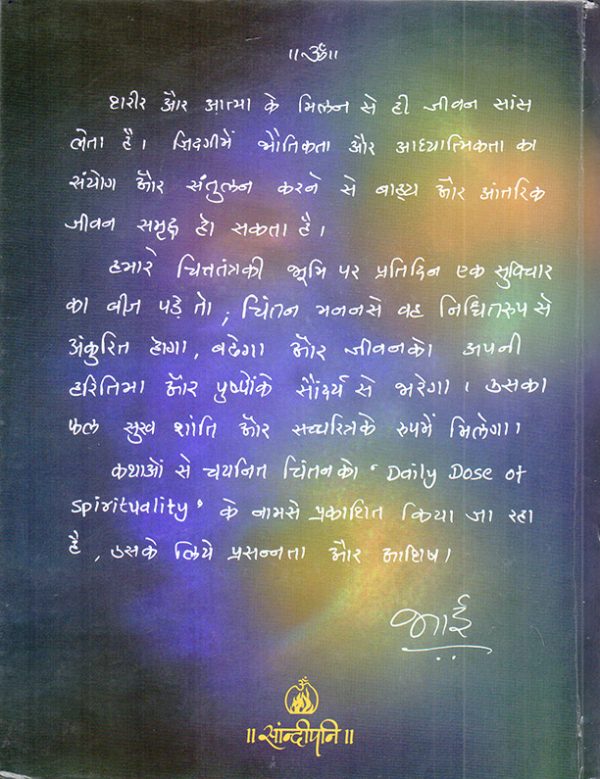 ॥ॐ॥
शरीर और आत्मा के मिलन से ही जीवन सांस
लेता है। ज़िदगीमें भौतिकता और आध्यात्मिकता का
संयोग और संतुलन करने से बाह्य और आंतरिक
जीवन समृद्ध हो सकता है।
हमारे चित्ततंत्रकी भूमि पर प्रतिदिन एक सुविचार
का बीज पड़े तो, चिंतन मननसे वह निश्चितरुप से
अंकुरित होगा, बढेगा और जीवनको अपनी
हरितिमा और पुष्पोंके सौंदर्य से भरेगा। उसका
फल सुख शांति और सच्चरित्रके रुपमें मिलेगा।
कथाओं से चयनित चिंतनको 'Daily Dose of
spirituality' के नामसे प्रकाशित किया जा रहा
है, उसके लिये प्रसन्नता और आशिष।
भाई
॥ सांन्दीपनि ॥